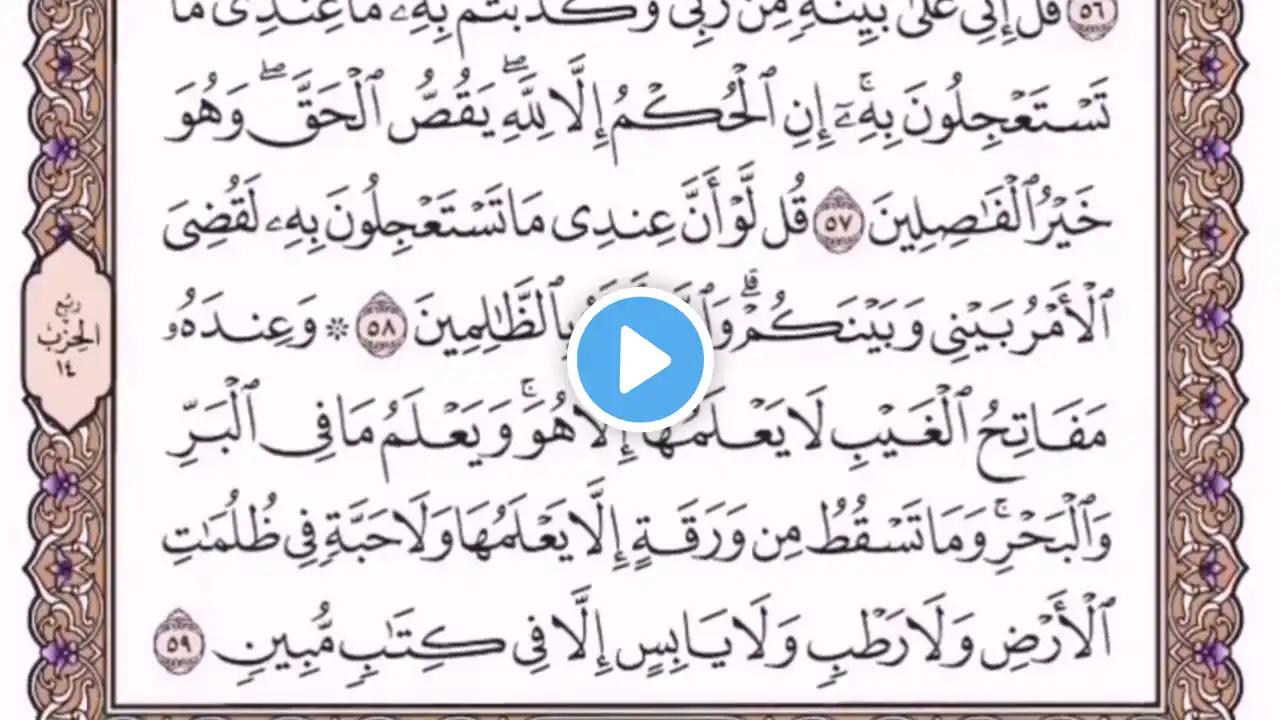 ٥٦ قُلۡ إِنِّي عَلَىٰ بَيِّنَةٖ مِّن رَّبِّي وَكَذَّبۡتُم بِهِۦۚ مَا عِندِي مَا
تَسۡتَعۡجِلُونَ بِهِۦٓۚ إِنِ ٱلۡحُكۡمُ إِلَّا لِلَّهِۖ يَقُصُّ ٱلۡحَقَّۖ وَهُوَ
خَيۡرُ ٱلۡفَٰصِلِينَ ٥٧ قُل لَّوۡ أَنَّ عِندِي مَا تَسۡتَعۡجِلُونَ بِهِۦ لَقُضِيَ
ٱلۡأَمۡرُ بَيۡنِي وَبَيۡنَكُمۡۗ بِٱلظَّٰلِمِينَ ٥٨ ۞ وَعِندَهُۥ
مَفَاتِحُ ٱلۡغَيۡبِ لَا يَعۡلَمُهَآ إِلَّا هُوَۚ وَيَعۡلَمُ مَا فِي ٱلۡبَرِّ
وَٱلۡبَحۡرِۚ وَمَا تَسۡقُطُ مِن وَرَقَةٍ إِلَّا يَعۡلَمُهَا وَلَا حَبَّةٖ فِي ظُلُمَٰتِ
ٱلۡأَرۡضِ وَلَا رَطۡبٖ وَلَا يَابِسٍ إِلَّا فِي كِتَٰبٖ مُّبِينٖ ٥٩
ربع
الحزب
١٤